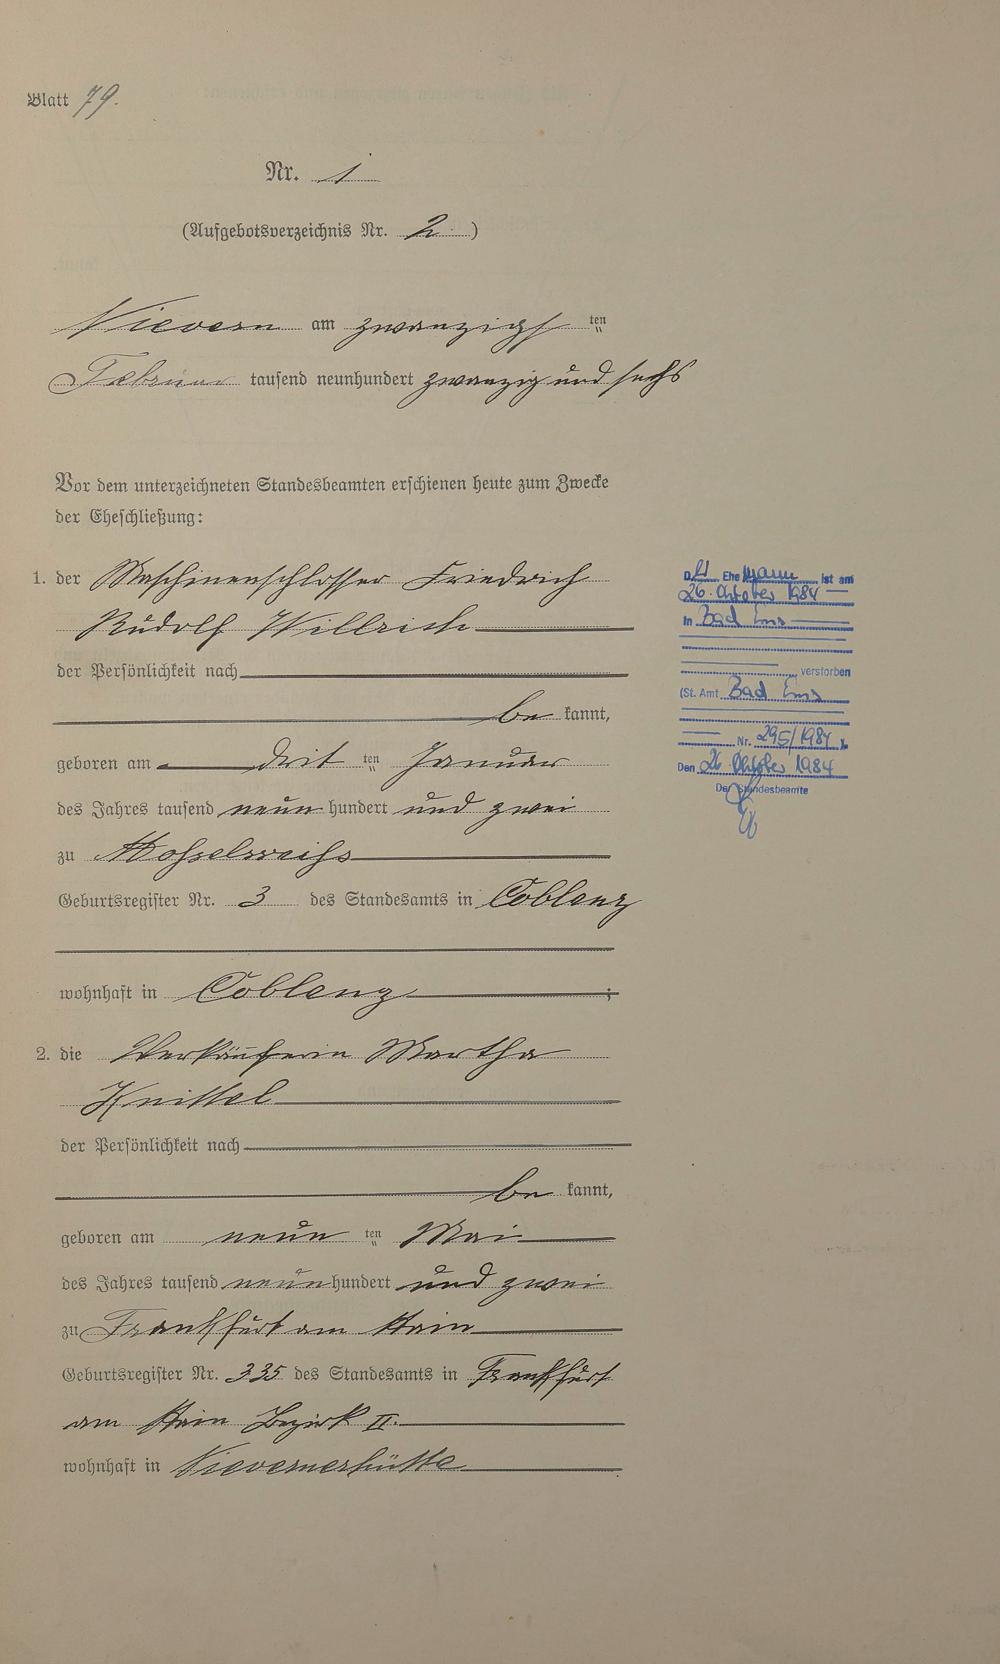 Blatt 79.
Nr. 1
(Aufgebotsverzeichnis Nr. 2)
Nievern am zwanzigsten
Februar tausend neunhundert zwanzig und sechs
Vor dem unterzeichneten Standesbeamten erschienen heute zum Zwecke
der Eheschließung:
1. der Maschinenschlosser Friedrich
Rudolf Willrich
der Persönlichkeit nach
be kannt,
geboren am dritten Januar
des Jahres tausend neun hundert und zwei
zu Moselweiß
Geburtsregister Nr. 3 des Standesamts in Coblenz
wohnhaft in Coblenz;
2. die Verkäuferin Martha
Knittel
der Persönlichkeit nach
be kannt,
geboren am neunten Mai
des Jahres tausend neun hundert und zwei
zu Frankfurt am Main
Geburtsregister Nr. 335 des Standesamts in Frankfurt
am Main Bezirk II.
wohnhaft in Nievernerhütte
Der Ehemann ist am
26. Oktober 1984
in Bad Ems
verstorben
(St. Amt Bad Ems
Nr. 295/1984).
Den 26. Oktober 1984
Der Standesbeamte